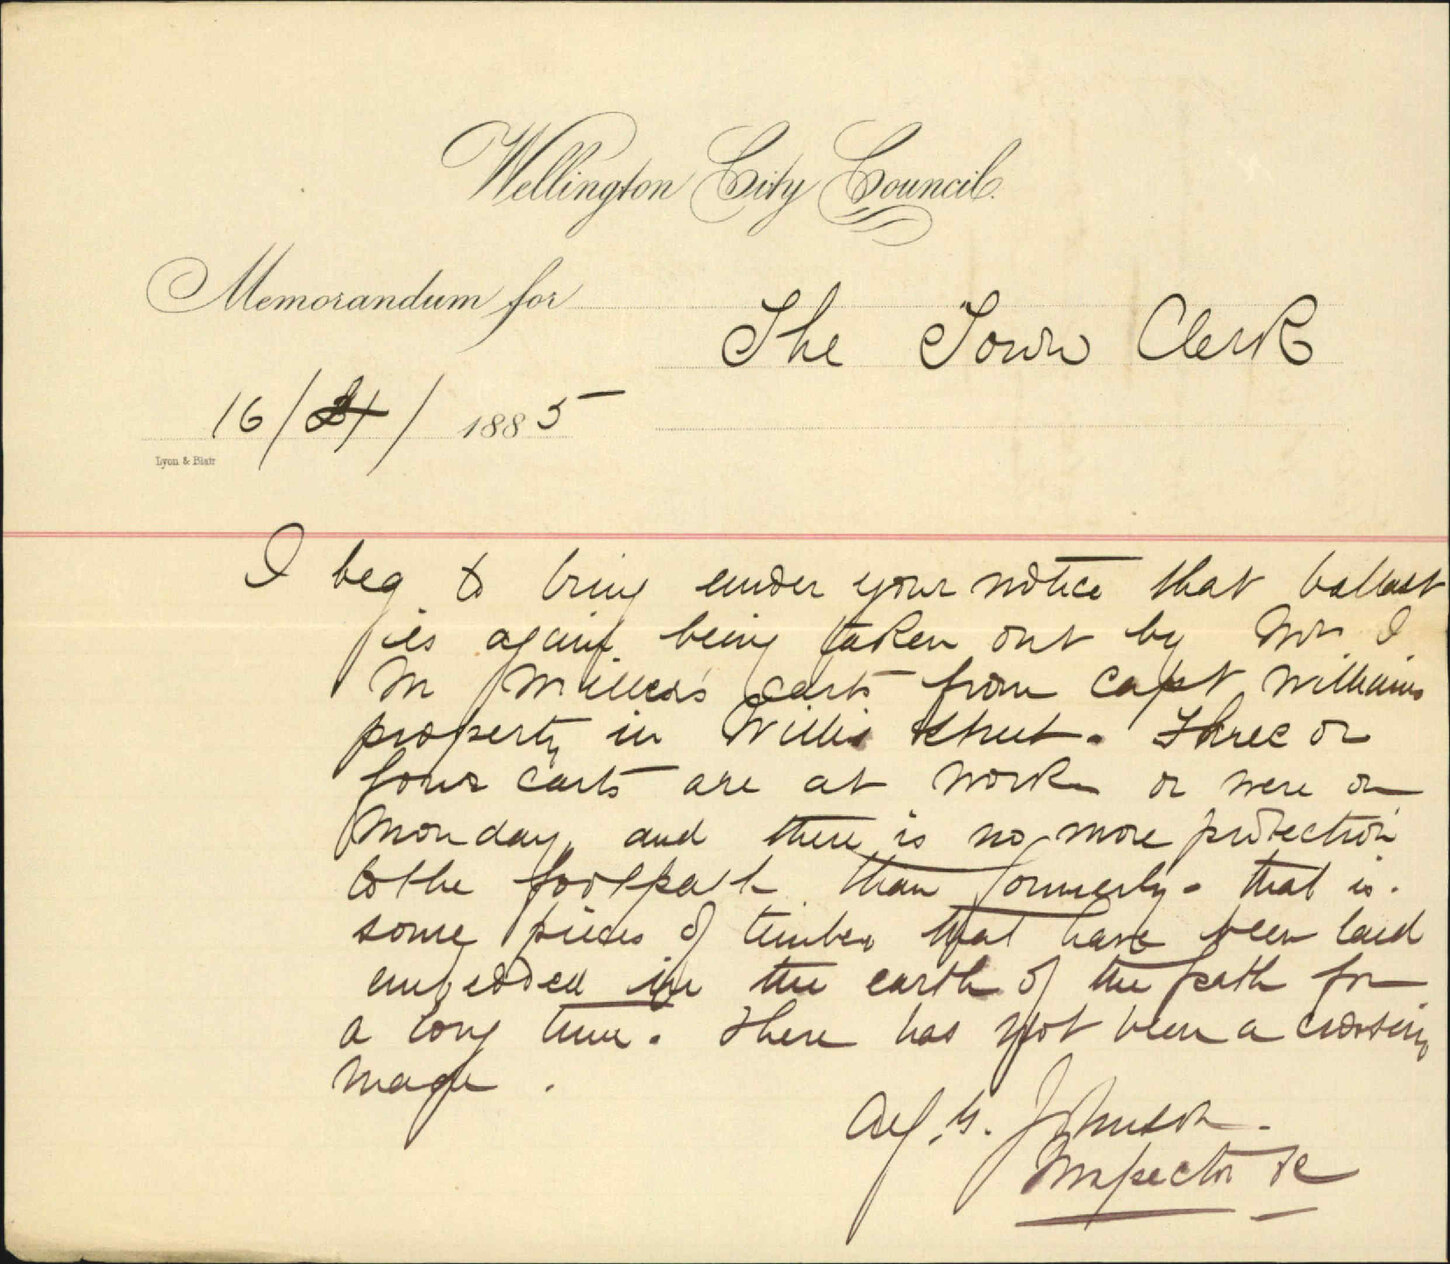 Wellington City Council.
Memorandum for
The Town Clerk
16/ / 1885
Lyon & Blair
I beg to bring under your notice that ballast
is again being taken out by Mr. J
M carts from Capt Williams
property in Willis Street. Three or
four carts are at work or were on
Monday, and there is no more protection
to the footpath than formerly - that is.
some pieces of timber that have been laid
embedded in the earth of the path for
a long time. There has not been a crossing
made.
Alf. G. Johnson.
Inspector &c